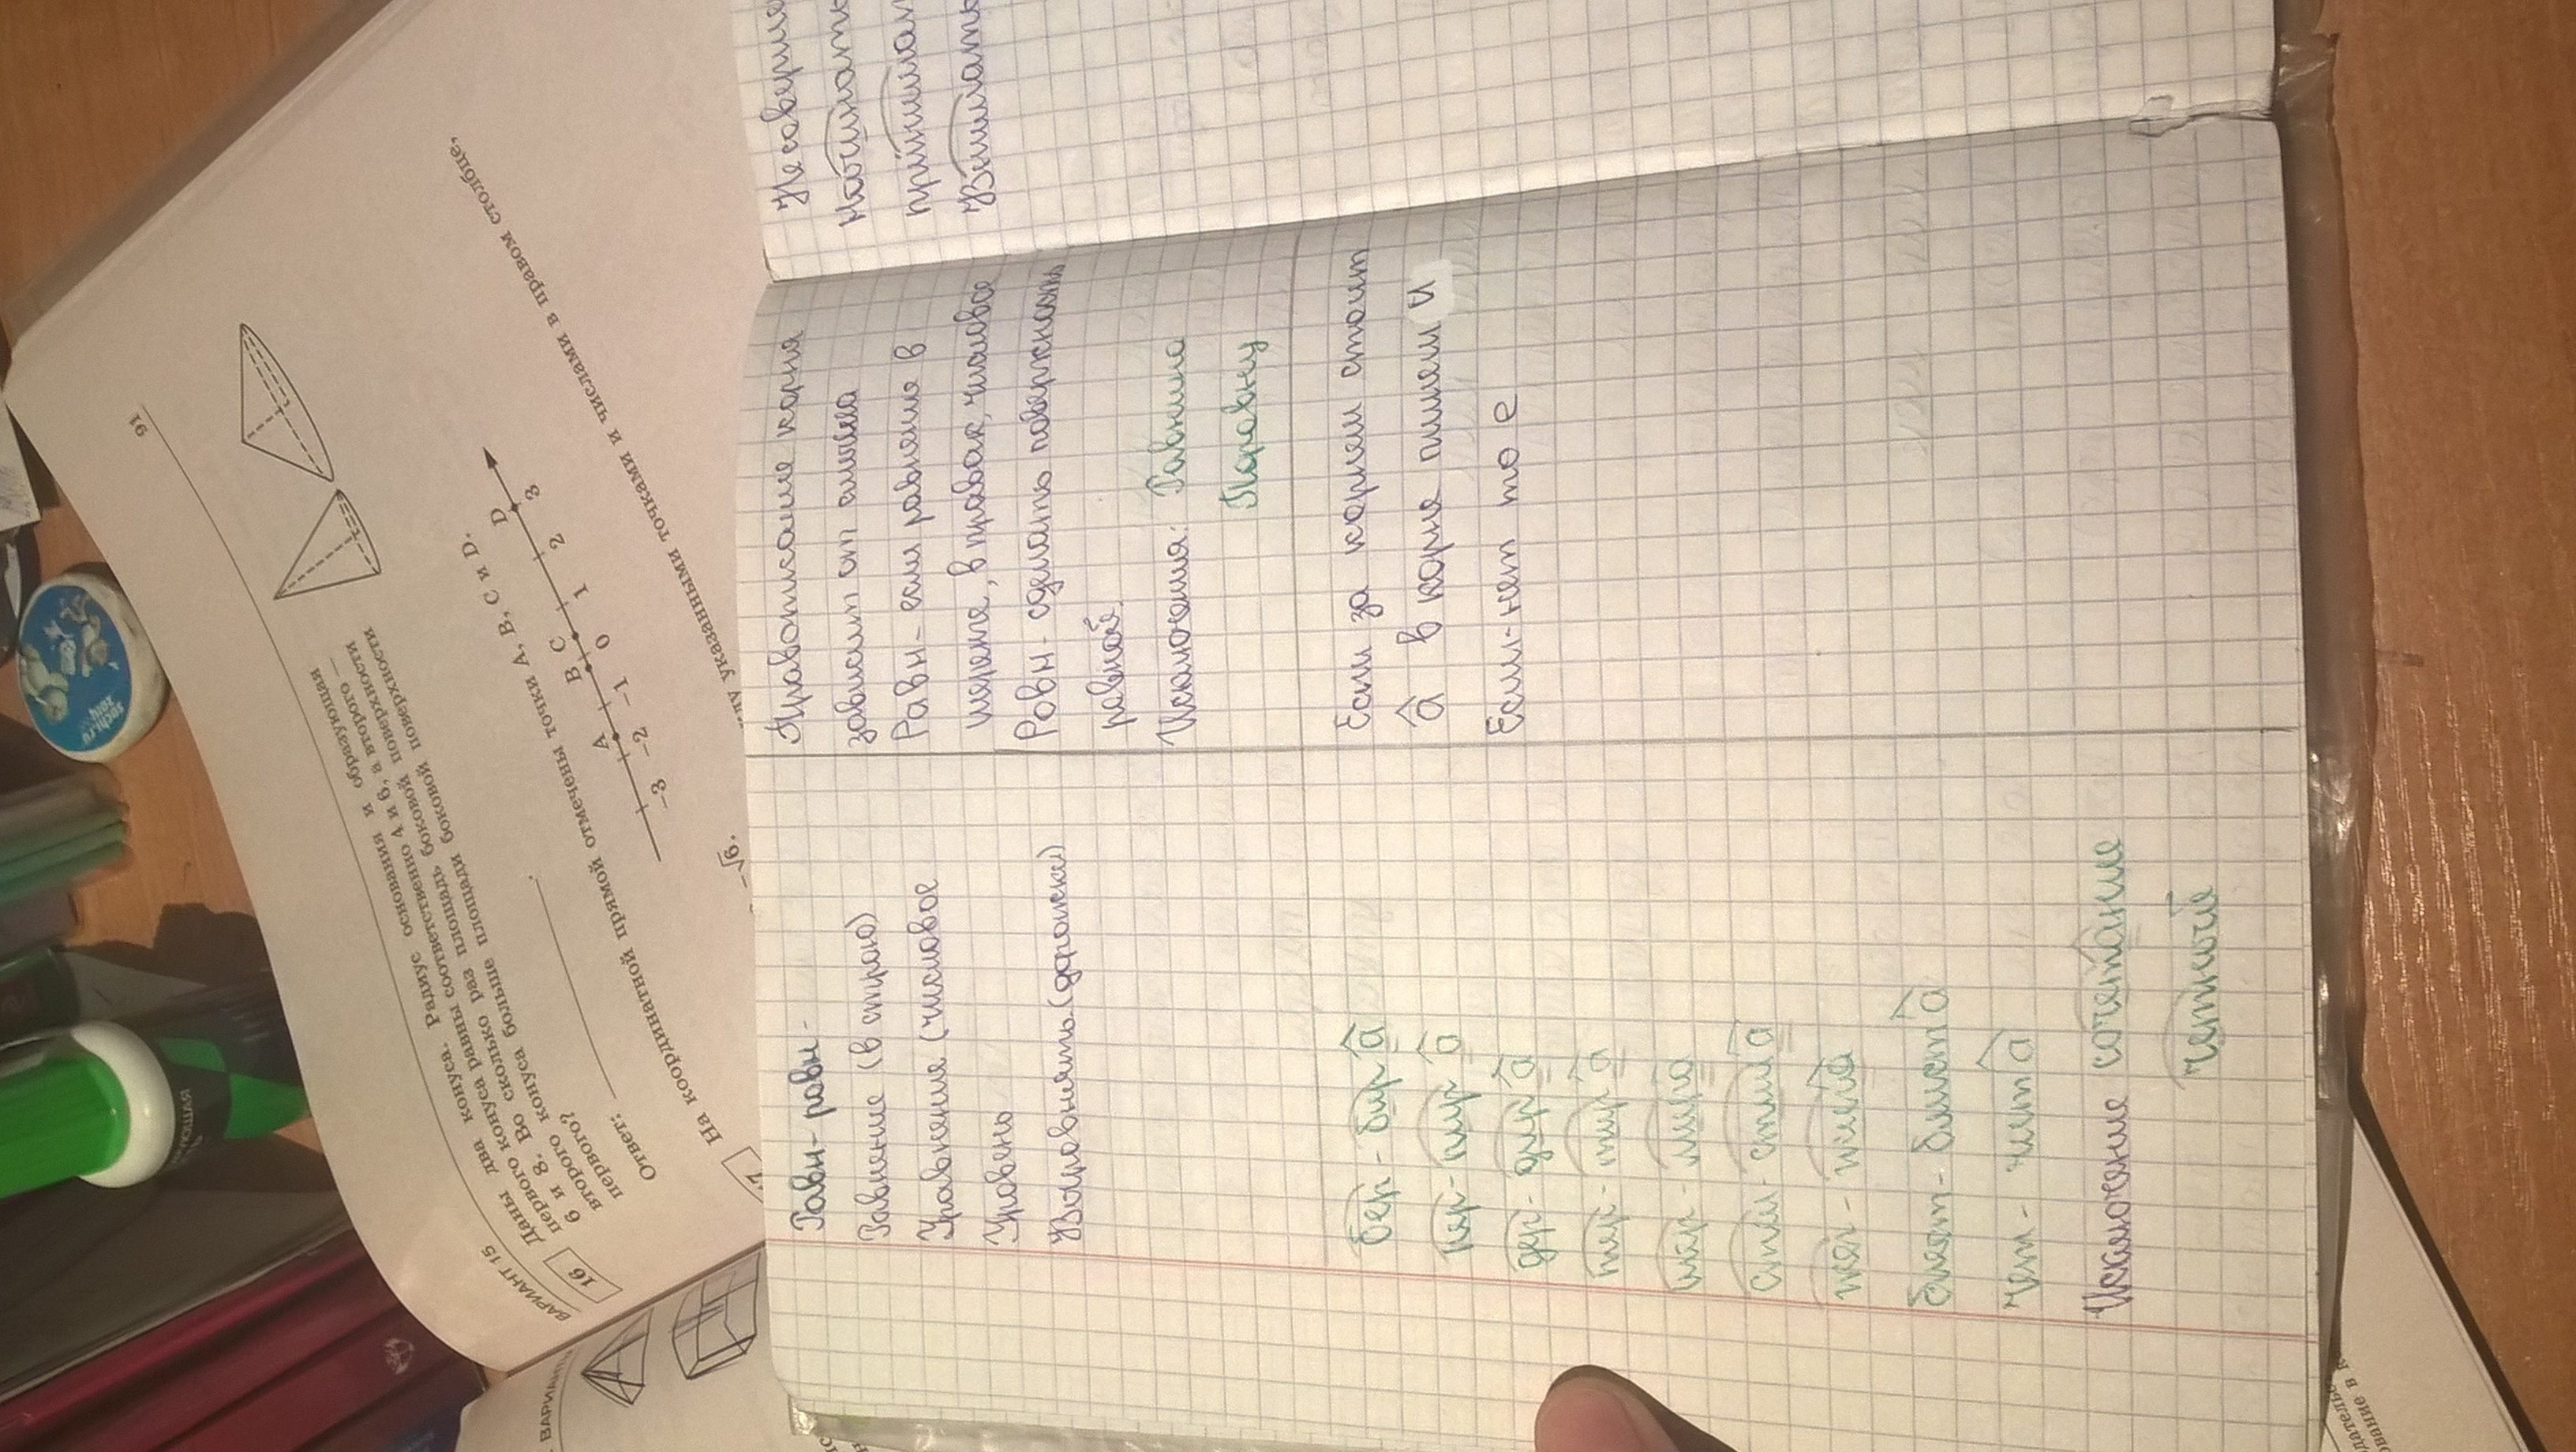 91
ВАРИАНТ 15
16
Даны два конуса. Радиус основания и образующая
первого конуса равны соответственно 4 и 6, а второго —
6 и 8. Во сколько раз площадь боковой поверхности
второго конуса больше площади боковой поверхности
первого?
Ответ:
На координатной прямой отмечены точки A, B, C и D.
A B C D
–3 –2 –1 0 1 2 3
указанными точками и числами в правом столбце.
–√6.
ВАРИАНТ
sochi.ru
2014
Равн- ровн-
Равнение (в строю)
Уравнение (числовое
Уровень
Выровнять (дорожки)
Правописание корня
зависит от смысла
Равн- если равнение в
шеренге, в правах, числовое
Ровн- сделать поверхность
ровной.
Исключения: Равнина
Поровну
бер - бира
пер - пира
дер - дира
тер - тира
мер - мира
стел - стила
жег - жига
блест - блиста
чет - чита
Исключение сочетание
четный
Если за корнем стоит
а в корне пишем и
Если-нет то е
Начинать